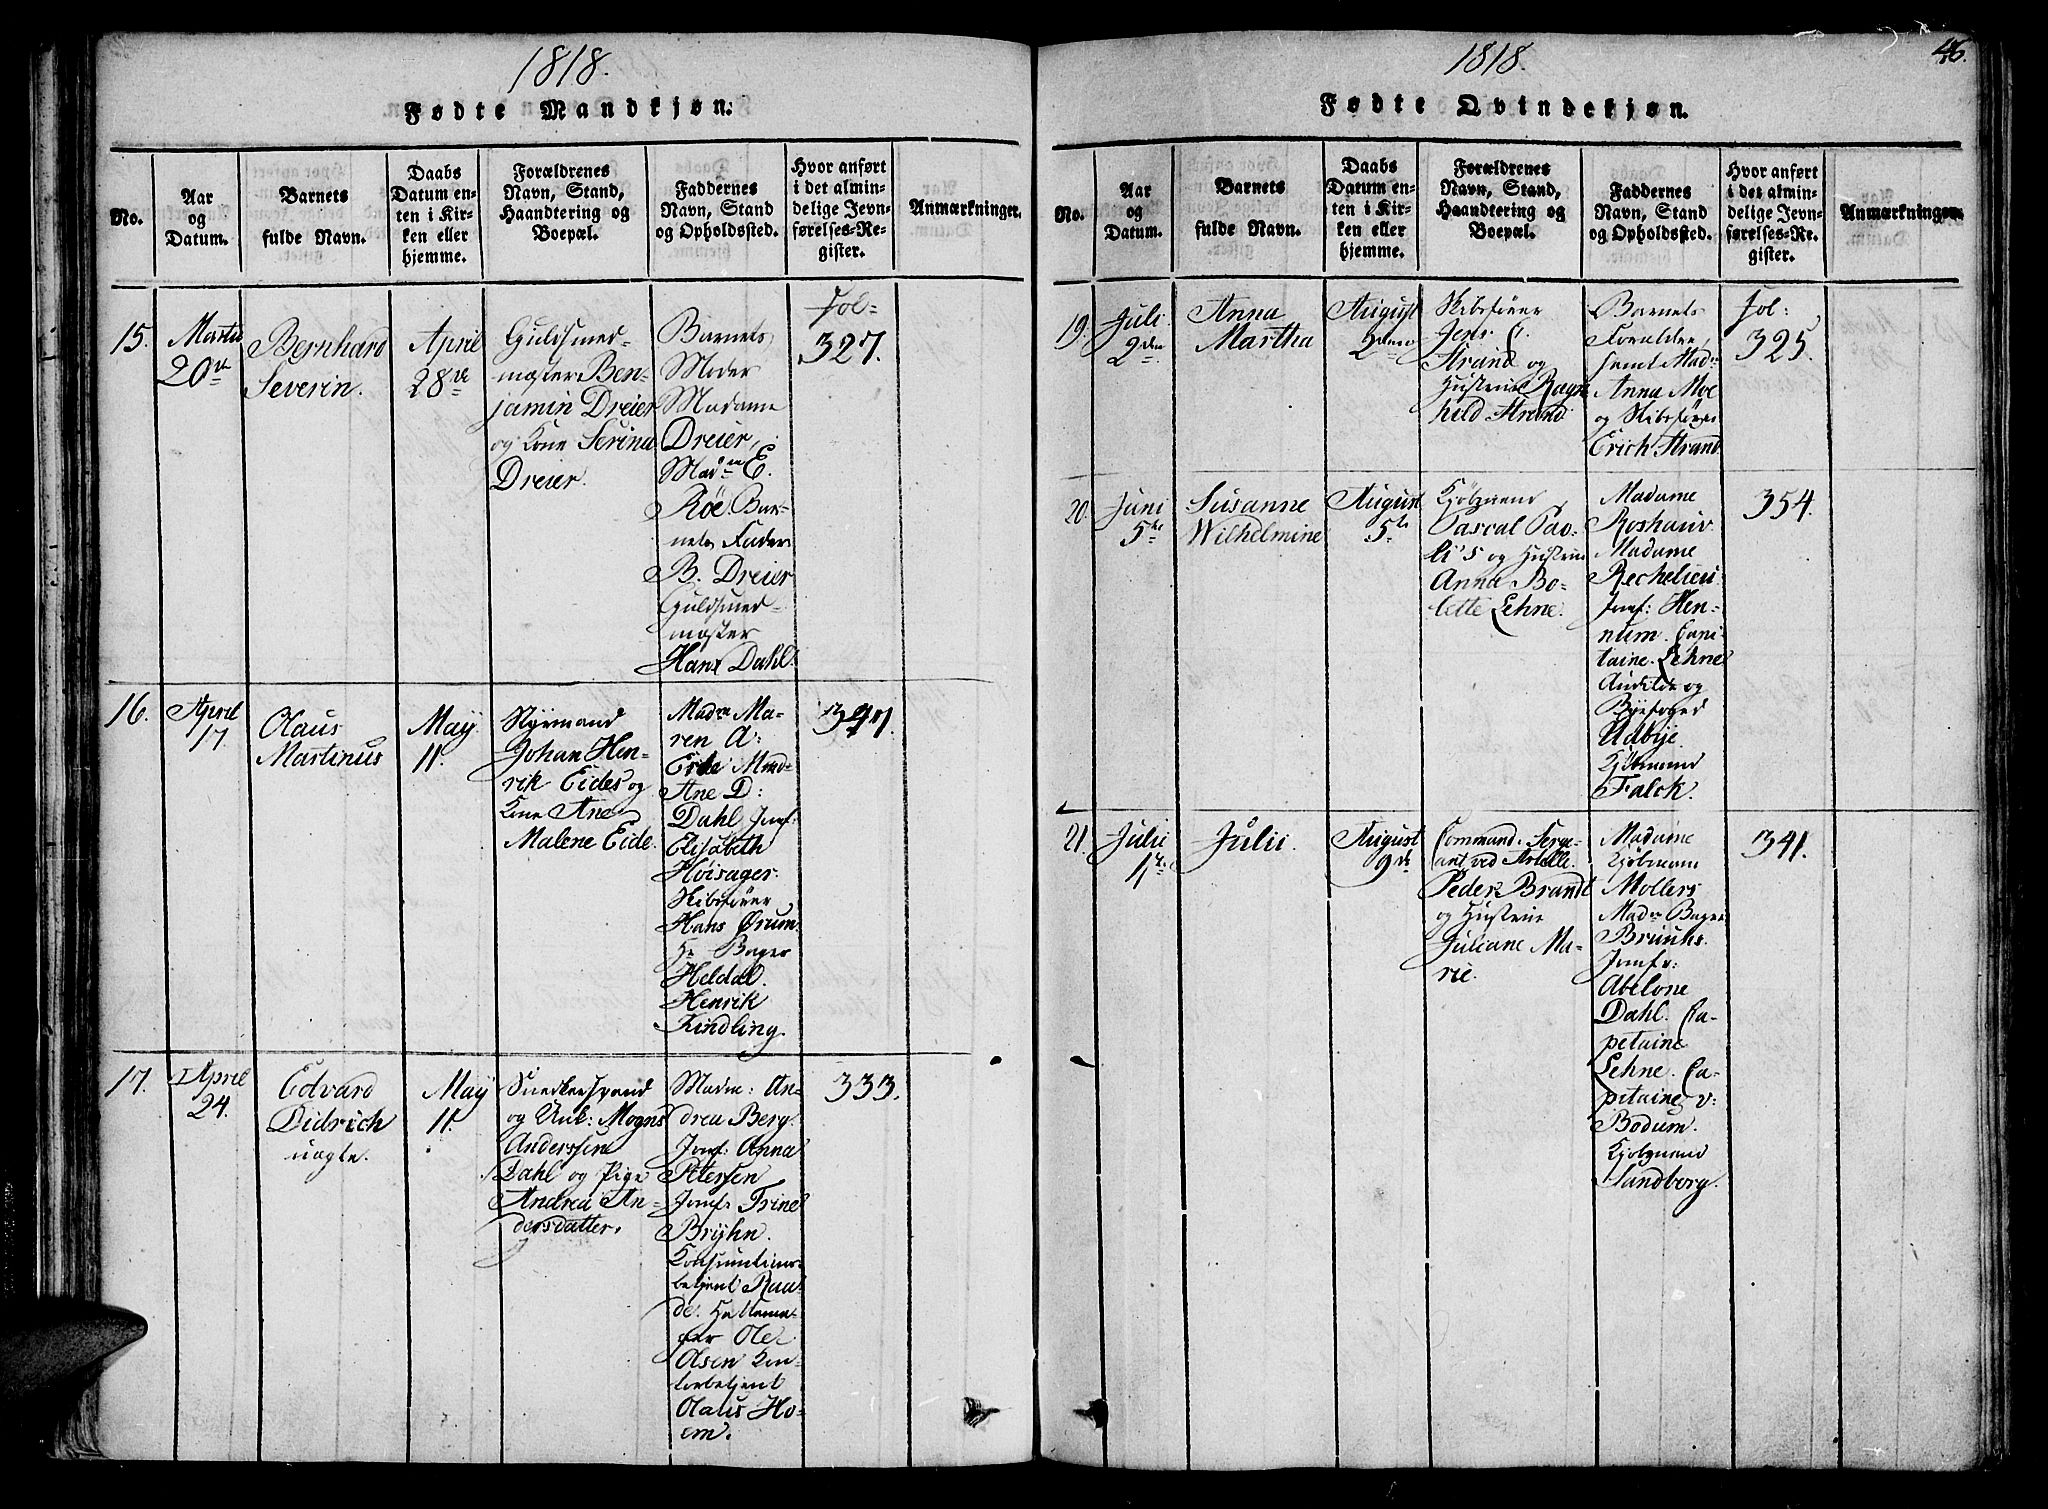 1818.
Fødte Mandkjøn:
No.
Aar
og
Datum.
Barnets
fulde Navn.
Daabs
Datum en-
ten i Kir-
ken eller
hjemme.
Forældrenes
Navn, Stand,
Haandtering og
Boepæl.
Faddernes
Navn, Stand
og Opholdssted.
Hvor anført
i det almin-
delige Jevn-
førelses-Re-
gister.
Anmærkninger.
15.
Martii
20de
Bernhard
Severin.
April
28de
Guldsmed-
mæster Ben-
jamin Dreier
og Kone Serina
Dreier.
Barnets
Moder
Madame
Dreier,
Madme E.
Røe. Bar-
nets Fader
B. Dreier
Guldsmed-
mæster
Hans Dahl.
Fol-
327.
16.
April
17.
Olaus
Martinus
May
11.
Styrmand
Johan Hen-
rik Eides og
Kone Ane
Malene Eide.
Madm Ma-
ren A:
Eide Mad-
Ane D:
Dahl Jomf:
Elisabeth
Høisager.
Skibsfører
Hans Ørum.
Hr Bager
Heldal.
Henrik
Kindling.
17.
April
24.
Edvard
Didrich
uægte.
May
11.
Snedkersvend
og Unk: Mogns
Anderssen
Dahl og Pige
Andrea An-
dersdatter.
Madm: An-
drea Berg.
Jomf: Anna
Petersen
Jomf: Trine
Bryhn.
Konsumtions-
betjent Ruu-
de.
Ole
Olsen Kon-
torbetjent
Olaus Ho-
em.
333.
1818.
46.
Fødte Qvindekjøn.
No.
Aar
og
Datum.
Barnets
fulde Navn.
Daabs
Datum en-
ten i Kir-
ken eller
hjemme.
Forældrenes
Navn, Stand,
Haandtering og
Boepæl.
Faddernes
Navn, Stand
og Opholdssted.
Hvor anført
i det almin-
delige Jevn-
førelses-Re-
gister.
Anmærkninger.
19.
Juli
2den
Anna
Martha
August
2den
Skibsfører
Jens C.
Strand og
Hustrue Ragn
hild Strand
Barnets
Forældre,
samt Mad.
Anna Moe
og Skibsfører
Erich Strand
Fol:
325.
20.
Juni
5te
Susanne
Wilhelmine
August
5te
Kjøbmand
Pascal Pao-
li's og Hustrue
Anna Bo-
lette Lehne.
Madame
Roshauv.
Madame
Rechelieu
Jomf: Hen-
num. Capi-
taine. Lehne
og
Byefoged
Udbye.
Kjøbmand
Falck.
354.
21.
Julii
Julii.
August
9de
Command: Serge-
ant ved Artille.
Peder Brandt
og Hustrue
Juliane Ma-
rie.
Madame
Kjøbmand
Mollers
Madm Bager
Bruuhs.
Jomfr:
Abelone
Dahl. Ca-
petaine
Lehne. Ca-
pitaine v:
Bodum.
Kjøbmand
Sandborg.
341.